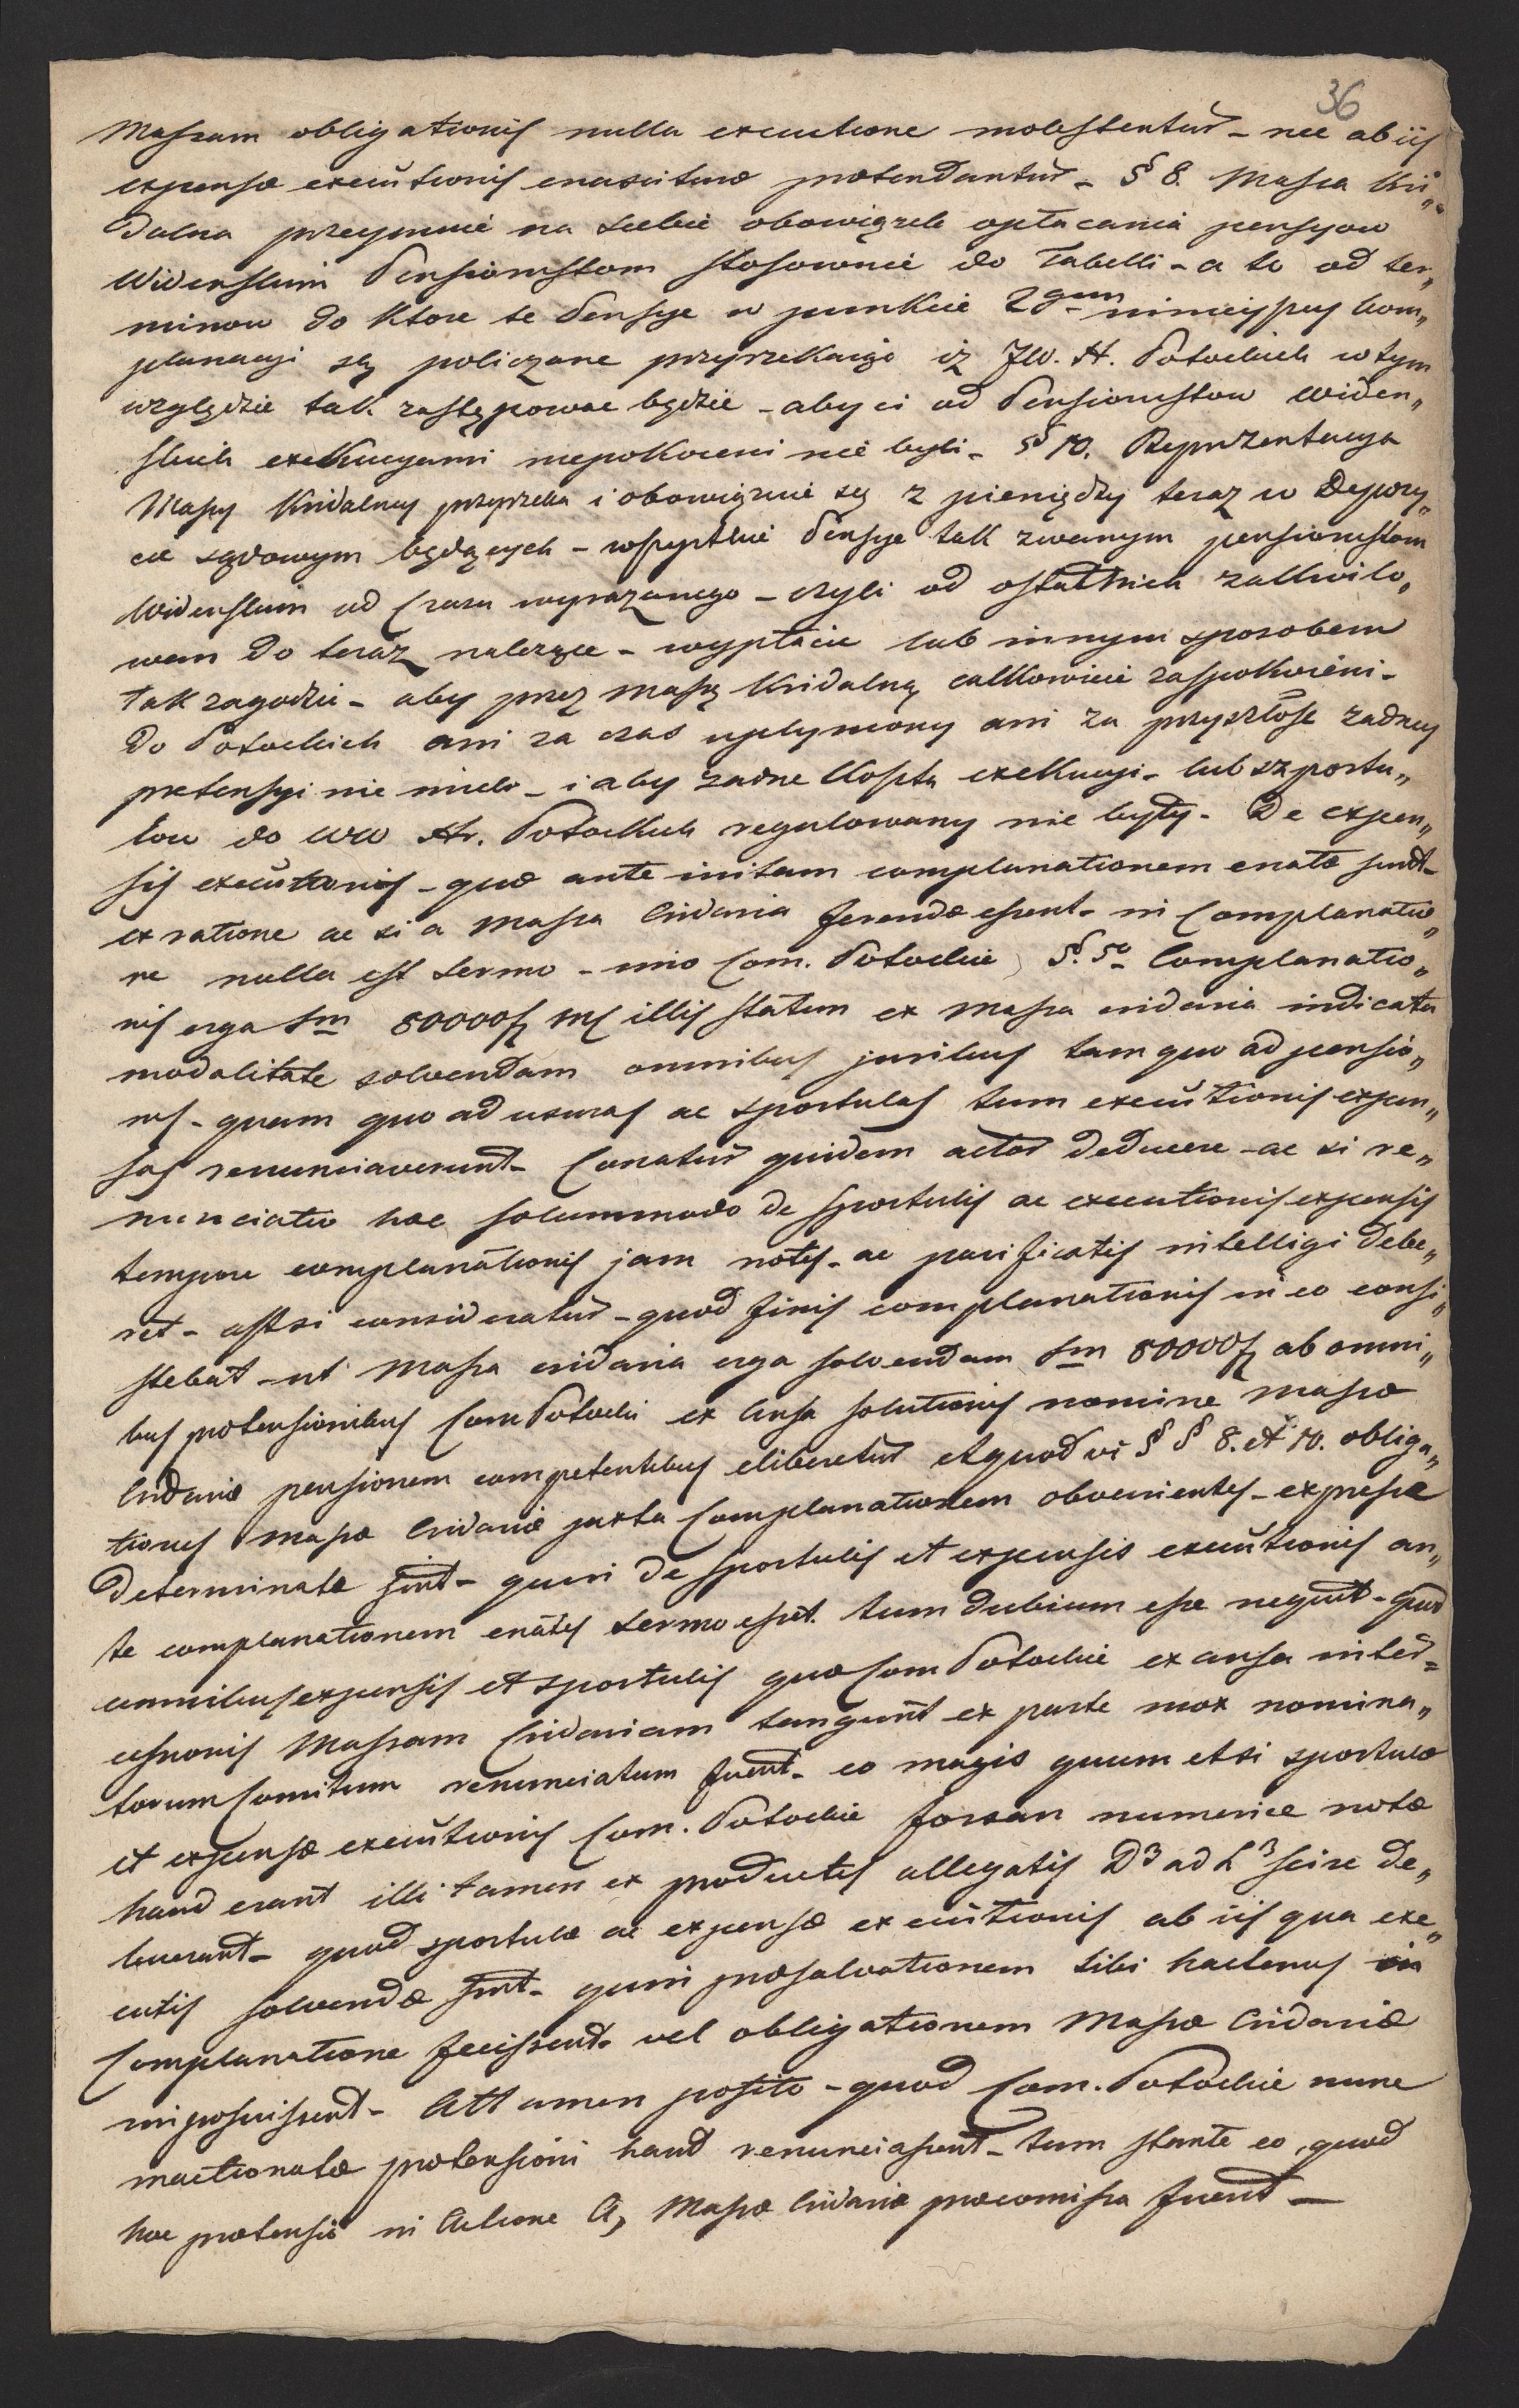 36
Massam obligationis nulla executione molestentur – nec ab iis
expensæ executionis enasciturae prætendantur – § 8. Massa Kri„
dalna przeymuie na siebie obowiązek opłacania pensyow
Widenskim Pensionistom stosownie do Tabelli – a to od ter„
minow do ktore te Pensye w punkcie 2gim ninieyszey kom„
planacyi są policzone przyrzekaiąc iz JW. H. Potockich w tym
względzie tak zastępować będzie – aby ci od Pensionistow widen„
skich exekucyami niepokoieni nie byli – § 10. Reprezentacya
Massy Kridalney przyrzeka i obowięzuie się z pieniędzy teraz w Depozy„
cie sądowym będących – wszystkie Pensye tak zwanym pensionistom
Widenskim od czasu wyrazonego – czyli od ostatnich zakwito„
wan do teraz nalezące – wypłacic lub innym sposobem
tak zagodzic – aby przez massę kridalną całkowicie zaspokoieni –
do Potockich ani za czas upłyniony ani za przyszłość zadney
pretensyi nie mieli – i aby zadne koszta exekucyi – lub szportu„
low do WW Hr. Potockich regulowany nie były – De expen„
sis executionis – quæ ante initam complanationem enatæ sunt –
ex ratione ac si a Massa Cridaria ferendæ essent – in Complanatio„
ne nulla est sermo – imo Com. Potockie §. 5o Complanatio„
nis erga Sm 80000f MC illis statim ex Massa cridaria indicata
modalitate solvendam omnibus juribus tam quo ad pensio„
nes – quam quo ad usuras ac sportulas tum executionis expen„
sas renunciaverunt – Conatur quidem actor deducere – ac si re„
nunciatio hæc solummodo de sportulis ac executionis expensis
tempore complanationis jam notis – ac purificatis intelligi debe„
ret – ast si consideratur – quod finis complanationis in eo consi„
stebat – ut Massa cridaria erga solvendam Sm 80000f ab omni„
bus prætensionibus Com Potocki ex causa solutionis nomine Massæ
Cridariæ pensionem competentibus eliberetur et quod vi § § 8. et 10. obliga„
tiones Massæ Cridariæ juxta Complanationem obvenientes – expresse
determinatæ sint – quin de sportulis et expensis executionis an„
te complanationem enatis sermo esset. tum dubium esse nequit – quod
omnibus expensis et sportulis quæ Com Potockie ex causa inter=
cessionis Massam Cridariam tangunt ex parte mox nomina„
torum Comitum renunciatum fuerit – eo magis quum etsi sportulæ
et expensæ executionis Com. Potockie forsan numerice notæ
haud erant illi tamen ex productis allegatis D3 ad L3 scire de„
buerant – quod sportulæ ac expensæ executionis ab iis qua exe„
cutis solvendæ sint – quin præsalvationem sibi hactenus in
Complanatione fecissent – vel obligationem Massæ Cridariæ
imposuissent – Attamen posito – quod Com. Potockie nunc
mactionatæ prætensioni haud renunciassent – tum stante eo, quod
hæc prætensio in Actione A, Massæ Cridariæ præcomissa fuerit —